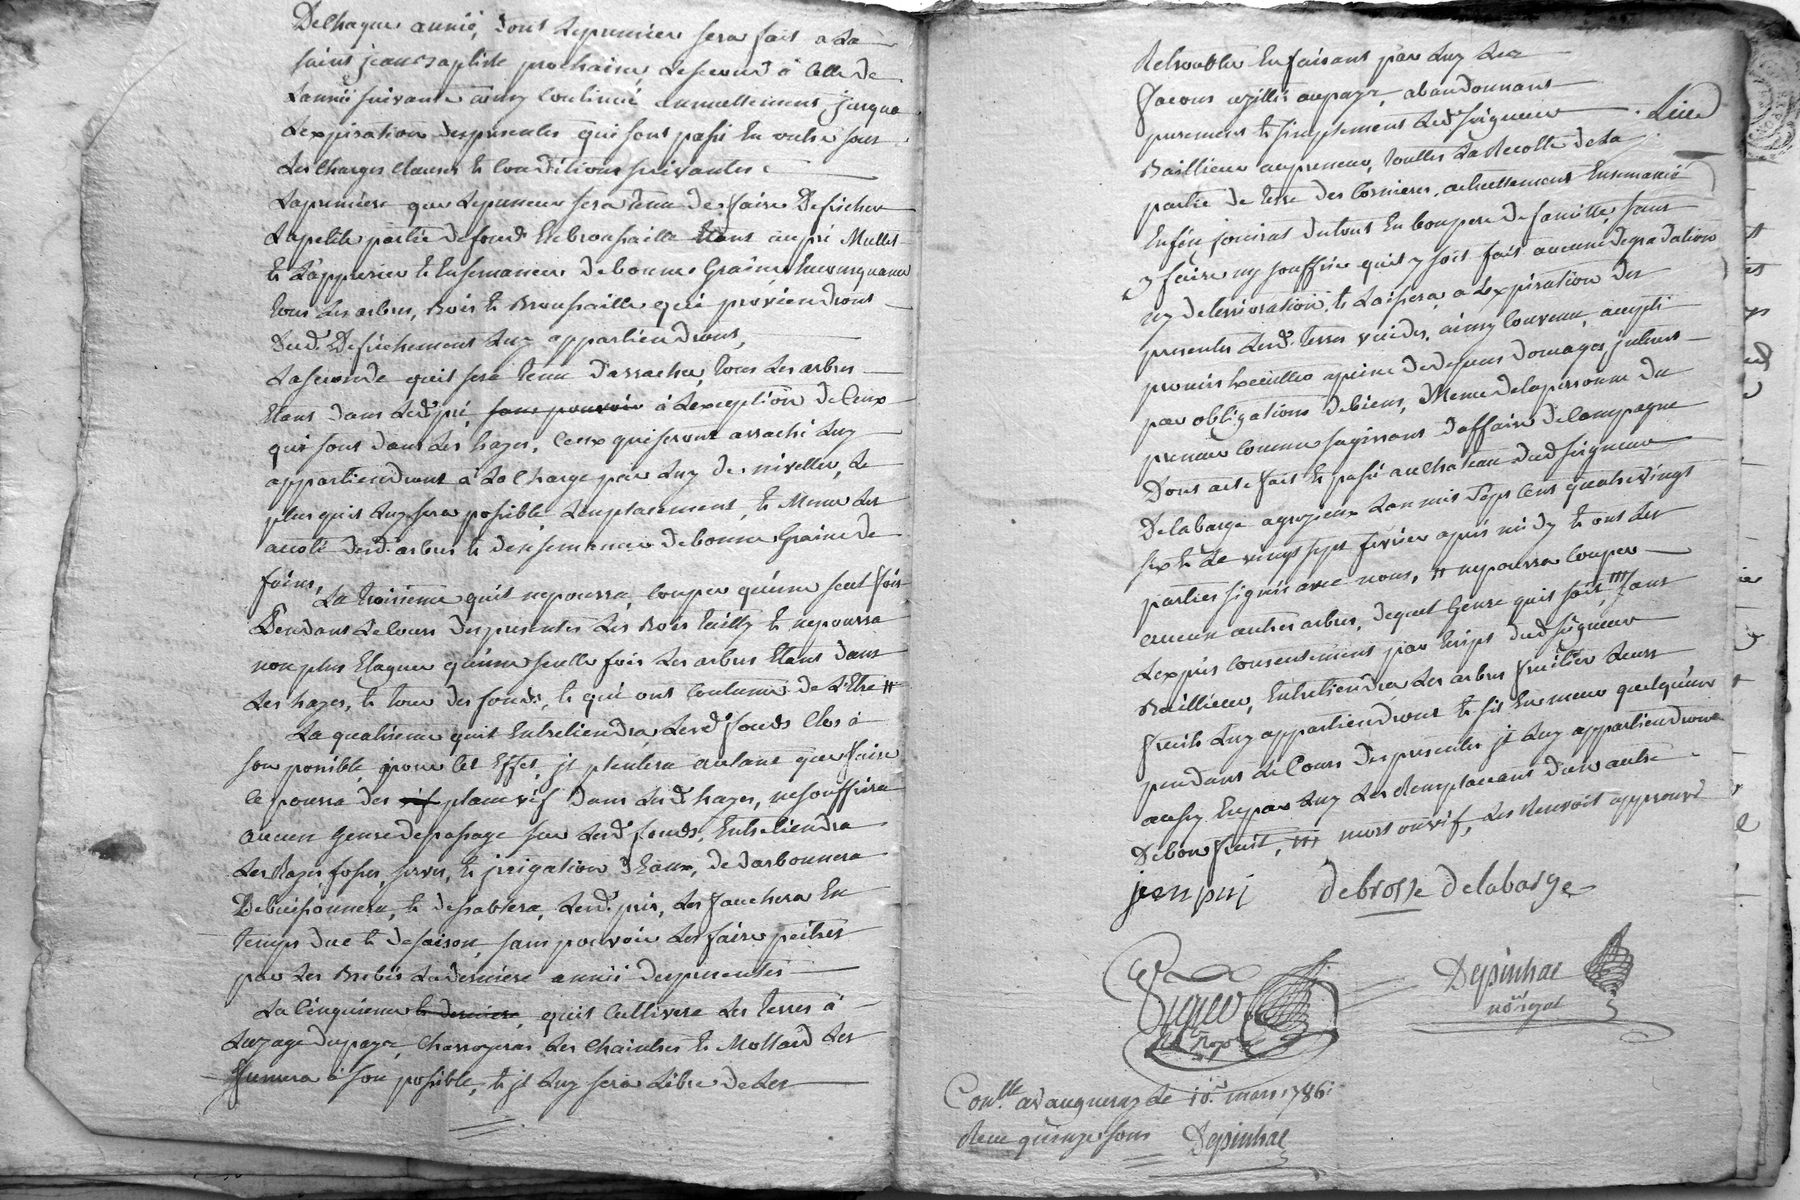 De chaque année, dont le premier sera fait a la
saint jean Baptiste prochaine, le second à celle de
lannée suivante ainsy continué annuellement jusqua
lexpiration des presentes qui sont passé en outre sous
les charges clauses et conditions suivantes :
La premiere que le preneur sera tenu de faire Defricher
la petite partie de fond en brousaille étant au pré Mullet
et lapproprier et lensemancer de bonne Graine, tous
tous les arbres, Bois et Brousaille qui proviendront
Dud. Defrichement luy appartiendront,
La seconde quil sera tenu d'arracher, tous les arbres
étans dans led. pré, sans pouvoir à lexception de Ceux
qui sont dans les hayes, Ceux qui seront arraché luy
appartiendront à la charge par luy de niveller, le
plus quil luy sera possible lemplacement, et Meme les
desd. arbres et densemancer de bonne Graine de
foins,
La troisieme quil ne pourra couper qu'une seul fois
Pendant le cours des presentes les Bois tailly et ne pourra
non plus Elaguer qu'une seulle fois les arbres Etans dans
les hayes, et tour des fonds, et qui ont coutume de L'Etre #
La quatrieme quil Entretiendra, lesd. fonds Clos à
son possible, pour cet Effet, jl plantera autant que faire
ce pourra des vif plant vif dans lesd. hayes, ne souffrira
aucun genre de passage sur lesd. fonds, Entretiendra
les Rases fossés, serves, et jrigation d'Eaux, de darbonnera
Debuissonnera, et desablera, lesd. prés, les fauchera En
temps due et de saison, sans pouvoir les faire paitres
par les Brebis la derniere année des presentes
La Cinquieme et derniere, quil Cultivera les terres à
lusage du pays, Charroyeras les Chaintres et Mollard les
fumera à son possible, et jl luy sera libre de les
Retroubler En faisant par luy les
facons uzillés au pays, abandonnant
purement et simplement led. seigneur
Luee
Baillieur au preneur, touttes la Recolte de la
partie de terre des Cornieres, actuellement Ensemancé
Enfin jouiras du tout En bon pere de famille, sans
y faire ny souffrir quil y soit fait aucune degradation
ny deterrioration, et laissera a lexpiration des
presentes lesd. terres vuides, ainsy convenu, accepté
promis hexécutter a peine de depens domages, jnterest
par obligations de biens, Meme de la personne du
preneur comme sagissant d'affaire de Campagne
Dont acte fait et passé au chateau dud. seigneur
Delabarge agrezieux lan mil sept cent quatrevingt
six et le vingt sept fevrier après midy et ont les
parties signés avec nous, # ne pourra couper
aucun autres arbres, de quel Genre quil soit, sans
lexprès consentement par Ecript dud. seigneur
Baillieur, Entretiendra les arbres fruitier leurs
fruits luy appartiendront et sil En meur quelqu'un
pendant le Cours des presentes jl luy appartiendront
aussy En par luy les Remplacant d'un autre
de bon fruit, mort ou vif, les Renvoit approuvé
jean puy debrosse delabarge
Depinhac
no.re royal
Con.lle a vaugneray le 10.e mars 1786.
Recu quinze sous Depinhac